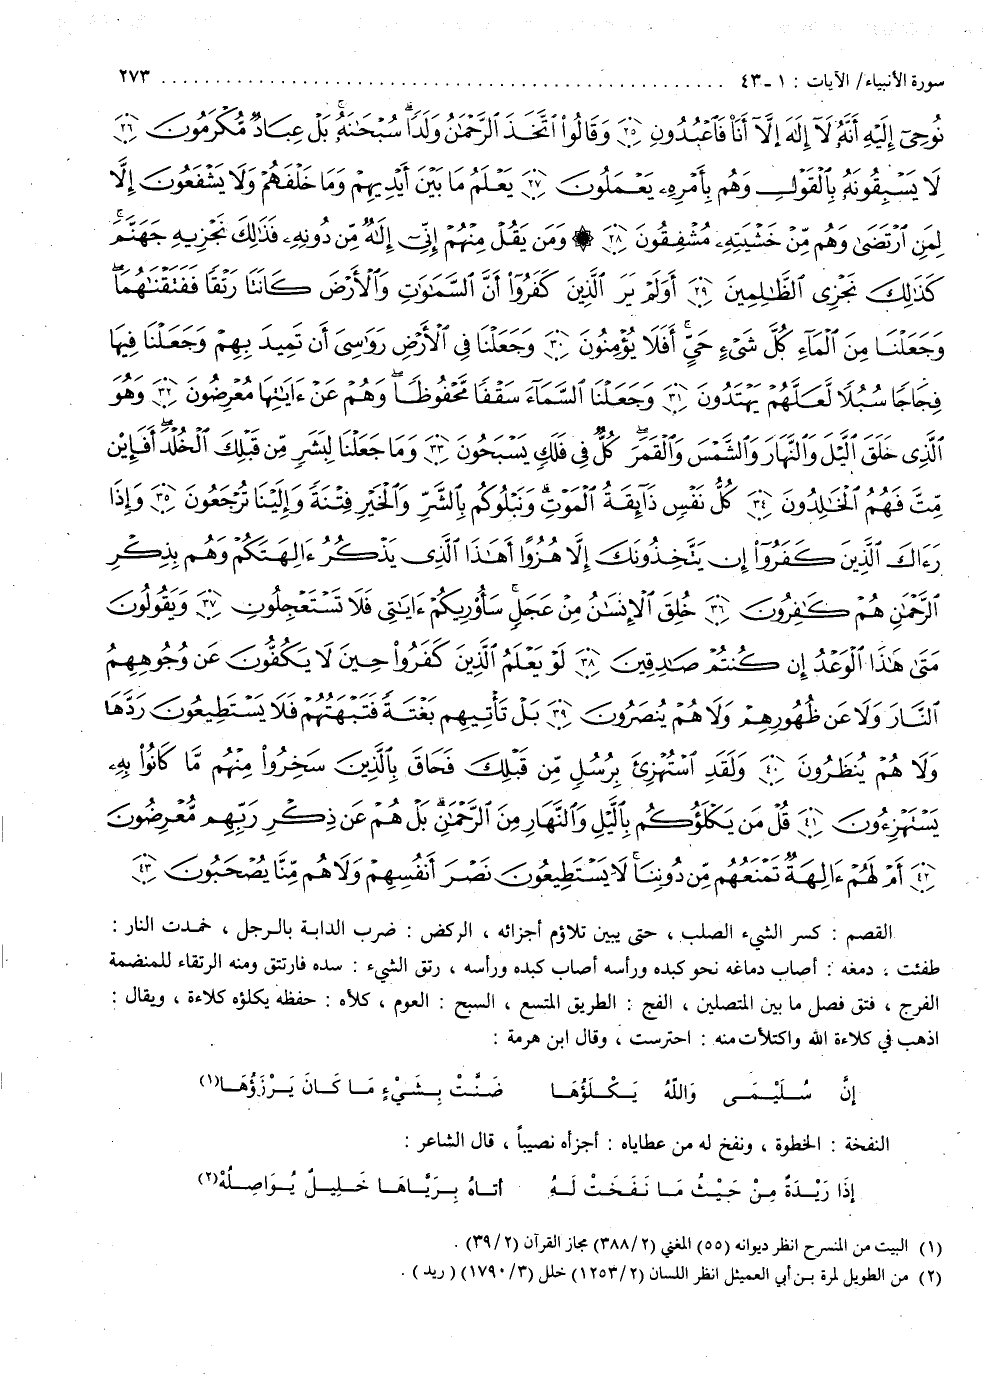 سورة الأنبياء/ الآيات : ١ ـ ٤٣ ........................................ ٢٧٣
نُوحِىٓ إِلَيْهِ أَنَّهُۥ لَآ إِلَٰهَ إِلَّآ أَنَا۠ فَٱعْبُدُونِ ﴿٢٥﴾ وَقَالُوا۟ ٱتَّخَذَ ٱلرَّحْمَٰنُ وَلَدًۭا ۗ سُبْحَٰنَهُۥ ۚ بَلْ عِبَادٌۭ مُّكْرَمُونَ ﴿٢٦﴾
لَا يَسْبِقُونَهُۥ بِٱلْقَوْلِ وَهُم بِأَمْرِهِۦ يَعْمَلُونَ ﴿٢٧﴾ يَعْلَمُ مَا بَيْنَ أَيْدِيهِمْ وَمَا خَلْفَهُمْ وَلَا يَشْفَعُونَ إِلَّا
لِمَنِ ٱرْتَضَىٰ وَهُم مِّنْ خَشْيَتِهِۦ مُشْفِقُونَ ﴿٢٨﴾ ۞ وَمَن يَقُلْ مِنْهُمْ إِنِّىٓ إِلَٰهٌۭ مِّن دُونِهِۦ فَذَٰلِكَ نَجْزِيهِ جَهَنَّمَ ۚ
كَذَٰلِكَ نَجْزِى ٱلظَّٰلِمِينَ ﴿٢٩﴾ أَوَلَمْ يَرَ ٱلَّذِينَ كَفَرُوٓا۟ أَنَّ ٱلسَّمَٰوَٰتِ وَٱلْأَرْضَ كَانَتَا رَتْقًۭا فَفَتَقْنَٰهُمَا ۖ
وَجَعَلْنَا مِنَ ٱلْمَآءِ كُلَّ شَىْءٍ حَىٍّ ۖ أَفَلَا يُؤْمِنُونَ ﴿٣٠﴾ وَجَعَلْنَا فِى ٱلْأَرْضِ رَوَٰسِىَ أَن تَمِيدَ بِهِمْ وَجَعَلْنَا فِيهَا
فِجَاجًۭا سُبُلًۭا لَّعَلَّهُمْ يَهْتَدُونَ ﴿٣١﴾ وَجَعَلْنَا ٱلسَّمَآءَ سَقْفًۭا مَّحْفُوظًۭا ۖ وَهُمْ عَنْ ءَايَٰتِهَا مُعْرِضُونَ ﴿٣٢﴾ وَهُوَ
ٱلَّذِى خَلَقَ ٱلَّيْلَ وَٱلنَّهَارَ وَٱلشَّمْسَ وَٱلْقَمَرَ ۖ كُلٌّۭ فِى فَلَكٍۢ يَسْبَحُونَ ﴿٣٣﴾ وَمَا جَعَلْنَا لِبَشَرٍۢ مِّن قَبْلِكَ ٱلْخُلْدَ ۖ أَفَإِي۟ن
مِّتَّ فَهُمُ ٱلْخَٰلِدُونَ ﴿٣٤﴾ كُلُّ نَفْسٍۢ ذَآئِقَةُ ٱلْمَوْتِ ۗ وَنَبْلُوكُم بِٱلشَّرِّ وَٱلْخَيْرِ فِتْنَةًۭ ۖ وَإِلَيْنَا تُرْجَعُونَ ﴿٣٥﴾ وَإِذَا
رَءَاكَ ٱلَّذِينَ كَفَرُوٓا۟ إِن يَتَّخِذُونَكَ إِلَّا هُزُوًا أَهَٰذَا ٱلَّذِى يَذْكُرُ ءَالِهَتَكُمْ وَهُم بِذِكْرِ
ٱلرَّحْمَٰنِ هُمْ كَٰفِرُونَ ﴿٣٦﴾ خُلِقَ ٱلْإِنسَٰنُ مِنْ عَجَلٍۢ ۚ سَأُو۟رِيكُمْ ءَايَٰتِى فَلَا تَسْتَعْجِلُونِ ﴿٣٧﴾ وَيَقُولُونَ
مَتَىٰ هَٰذَا ٱلْوَعْدُ إِن كُنتُمْ صَٰدِقِينَ ﴿٣٨﴾ لَوْ يَعْلَمُ ٱلَّذِينَ كَفَرُوا۟ حِينَ لَا يَكُفُّونَ عَن وُجُوهِهِمُ
ٱلنَّارَ وَلَا عَن ظُهُورِهِمْ وَلَا هُمْ يُنصَرُونَ ﴿٣٩﴾ بَلْ تَأْتِيهِم بَغْتَةًۭ فَتَبْهَتُهُمْ فَلَا يَسْتَطِيعُونَ رَدَّهَا
وَلَا هُمْ يُنظَرُونَ ﴿٤٠﴾ وَلَقَدِ ٱسْتُهْزِئَ بِرُسُلٍۢ مِّن قَبْلِكَ فَحَاقَ بِٱلَّذِينَ سَخِرُوا۟ مِنْهُم مَّا كَانُوا۟ بِهِۦ
يَسْتَهْزِءُونَ ﴿٤١﴾ قُلْ مَن يَكْلَؤُكُم بِٱلَّيْلِ وَٱلنَّهَارِ مِنَ ٱلرَّحْمَٰنِ ۗ بَلْ هُمْ عَن ذِكْرِ رَبِّهِم مُّعْرِضُونَ
﴿٤٢﴾ أَمْ لَهُمْ ءَالِهَةٌۭ تَمْنَعُهُم مِّن دُونِنَا ۚ لَا يَسْتَطِيعُونَ نَصْرَ أَنفُسِهِمْ وَلَا هُم مِّنَّا يُصْحَبُونَ ﴿٤٣﴾
القصم : كسر الشيء الصلب ، حتى يبين تلاؤم أجزائه ، الركض : ضرب الدابة بالرجل ، خمدت النار :
طفئت ، دمغه : أصاب دماغه نحو كبده ورأسه أصاب كبده ورأسه ، رتق الشيء : سده فارتتق ومنه الرتقاء للمنضمة
الفرج ، فتق فصل ما بين المتصلين ، الفج : الطريق المتسع ، السبح : العوم ، كلأه : حفظه يكلؤه كلاءة ، ويقال :
اذهب في كلاءة الله واكتلأت منه : احترست ، وقال ابن هرمة :
إنَّ سُلَيْمَى وَاللَّهُ يَكْلَؤُهَا ضَنَّتْ بِشَيْءٍ مَا كَانَ يَرْزَؤُهَا(١)
النفخة : الخطوة ، ونفخ له من عطاياه : أجزأه نصيباً ، قال الشاعر :
إذَا رَيْدَةٌ مِنْ حَيْثُ مَا نَفَخَتْ لَهُ أتَاهُ بِرَيَّاهَا خَلِيلٌ يُوَاصِلُهْ(٢)
(١) البيت من المنسرح انظر ديوانه (٥٥) المغني (٣٨٨/٢) مجاز القرآن (٣٩/٢) .
(٢) من الطويل لمرة بن أبي العميثل انظر اللسان (١٢٥٣/٢) خلل (١٧٩٠/٣) ( ريد ) .